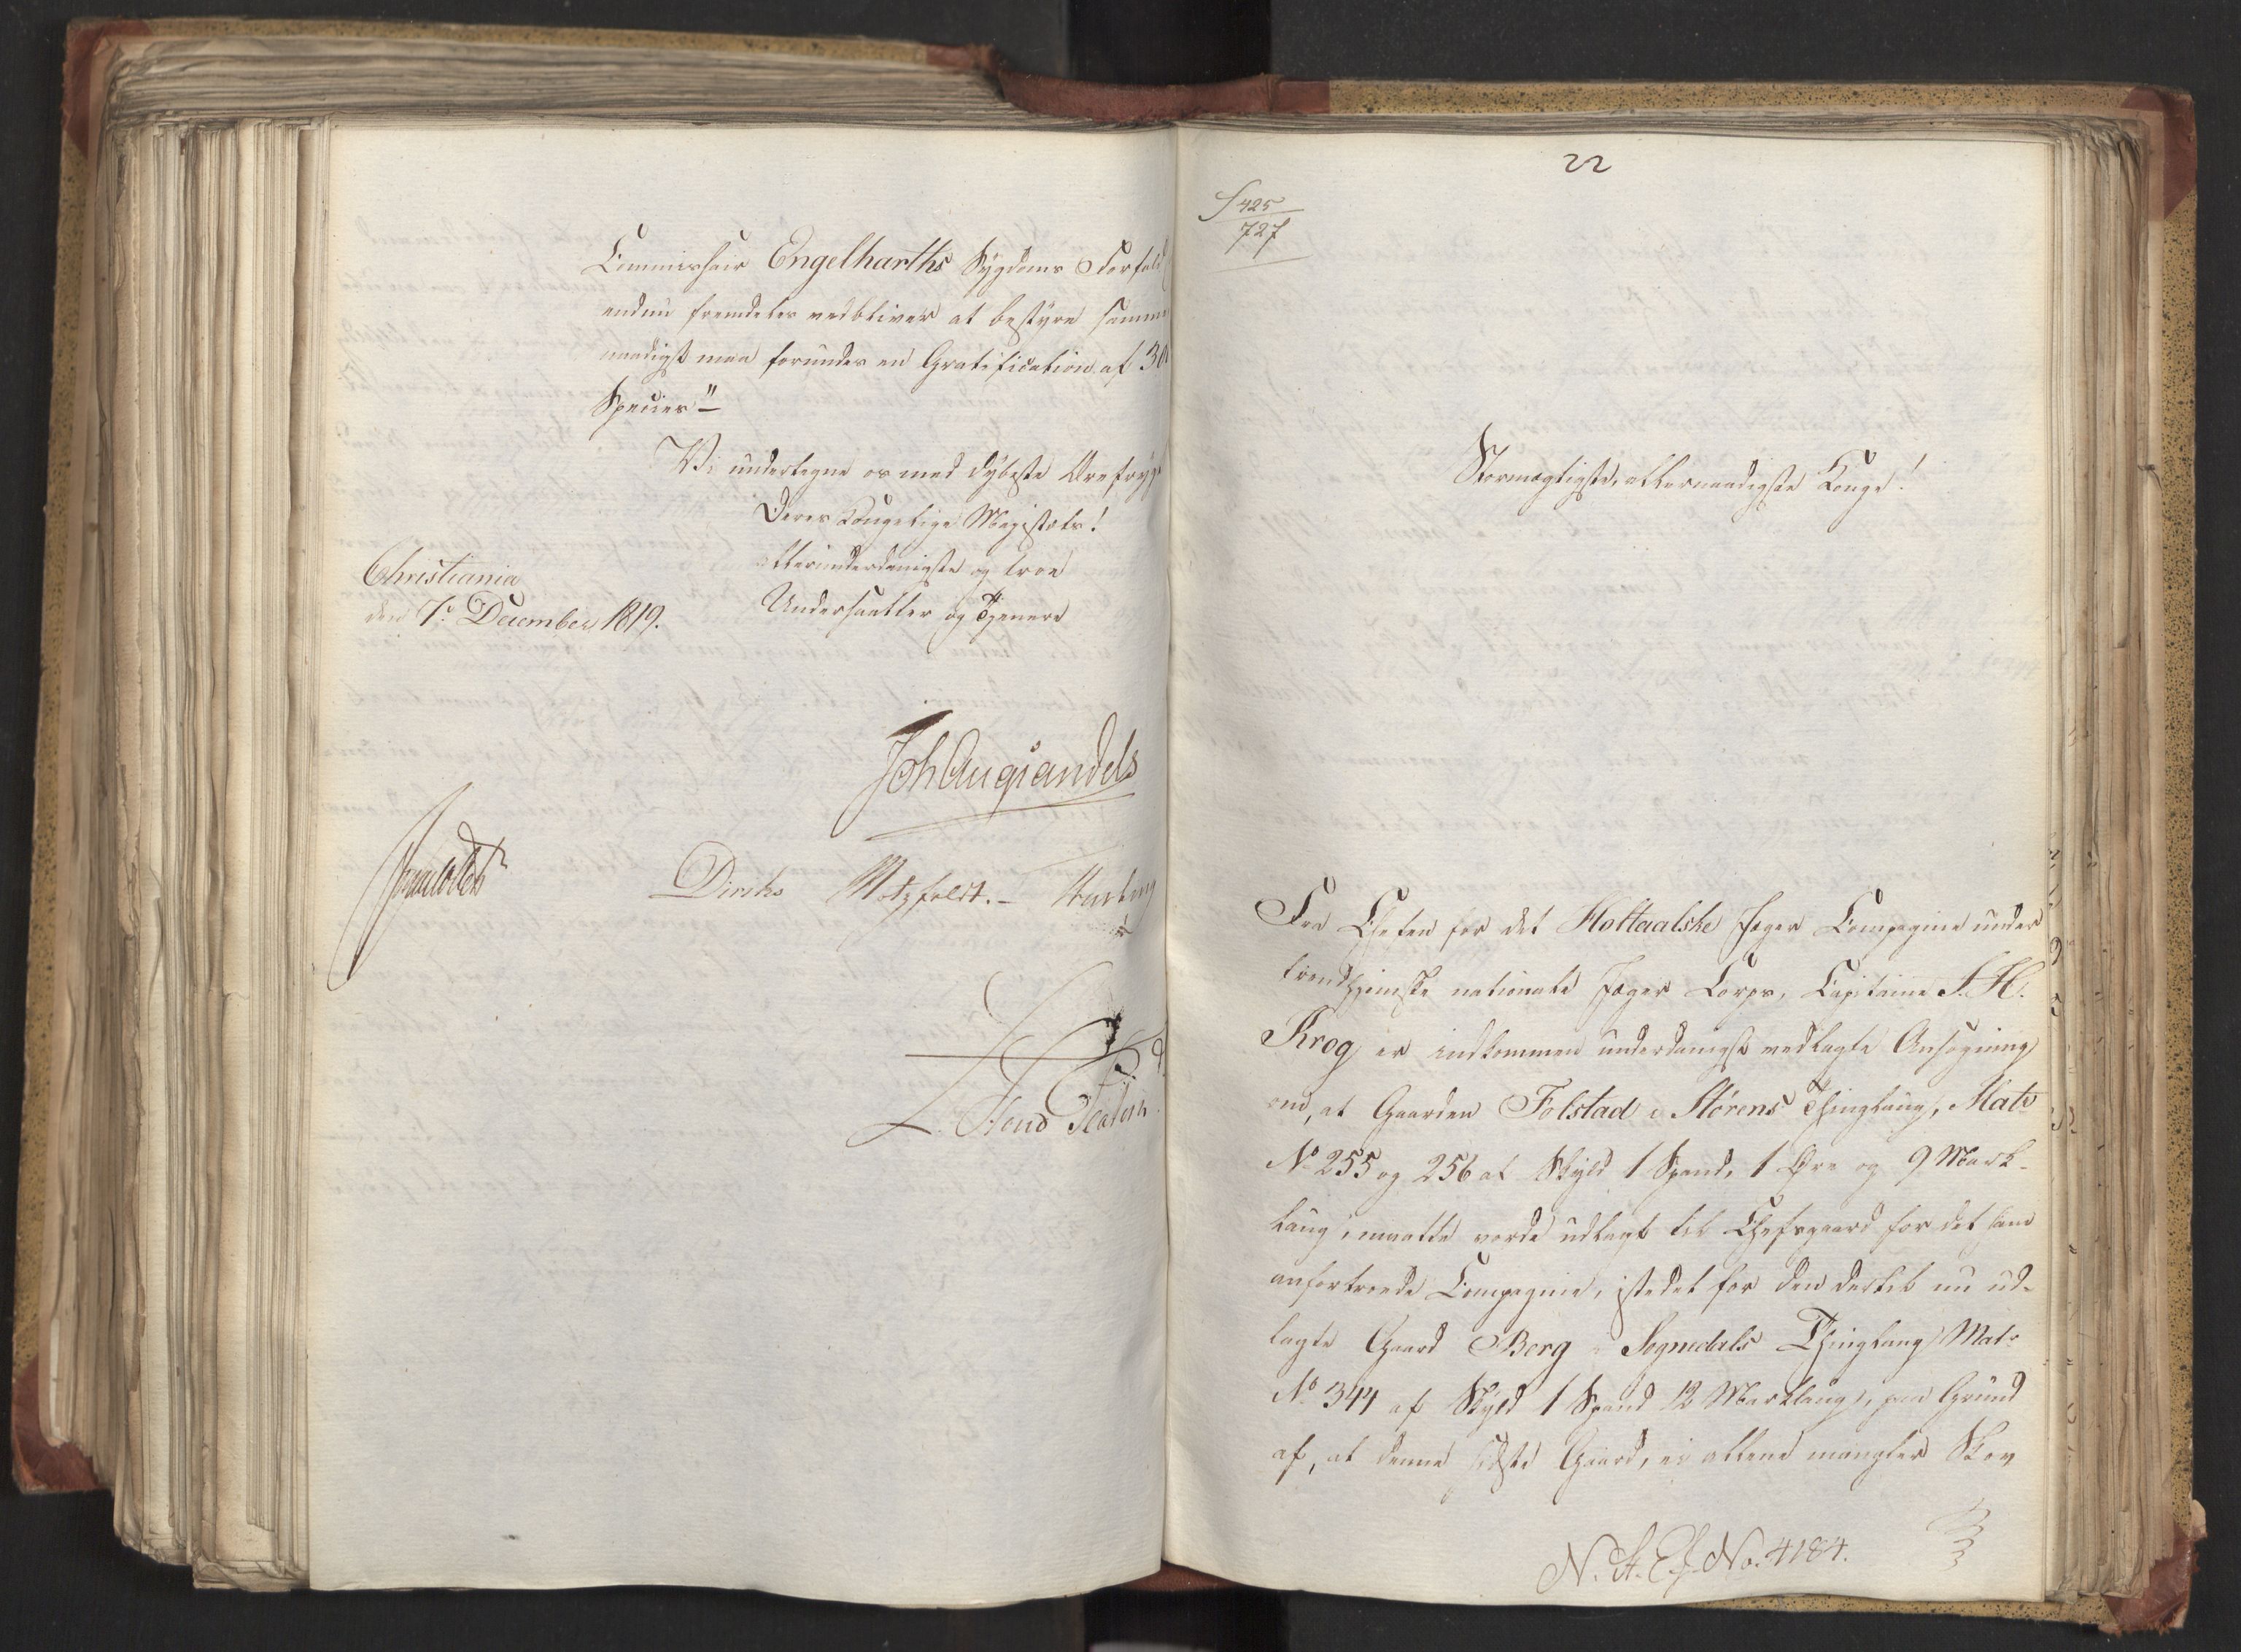 Commissair Engelharths Sygdoms Forfald
endnu fremdeles vedbliver at bestyre samme
naadigst maa forundes en Gratification af 30
Species"
Vi undertegne os med dybeste Ærefrygt
Deres Kongelige Majestæts!
allerunderdanigste og troe
Undersaatter og Tjenere
Christiania
den 7. December 1819.
Joh Aug Sandels
Diriks Motzfeldt.
22
S 425
727
Stormægtigste, allernaadigste Konge!
Fra Chefen for det Holtaalske Jæger Compagnie under
trondhjemske nationale Jæger Corps, Capitaine S. H.
Krog er indkommen underdanigst vedlagte Ansøgning
om, at Gaarden Folstad i Störens Thinglaug, Matr
No 255 og 256 af Skyld 1 Spand, 1 Øre og 9 Mark-
laug, maatte vorde udlagt til Chefsgaard for det ham
anfortroede Compagnie, istedet for den dertil nu ud-
lagte Gaard Berg i Sognedals Thinglaug Matr
No 344 af Skyld 1 Spand 12 Marklaug, paa Grund
af, at denne sidste Gaard, ei allene mangler Skov
N. A. E. f. No. 4184.